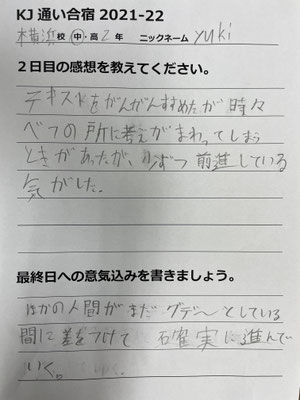 KJ 通い合宿 2021-22
横浜校 中・高 2年 ニックネーム yuki
2日目の感想を教えてください。
テキストをがんがんすすめたが 時々
べつの所に考えがまわってしまう
ときがあったが、少しずつ 前進している
気がした。
最終日への意気込みを書きましょう。
ほかの人間がまだ グデ〜としている
間に差をつけて 確実に進んで
いく。